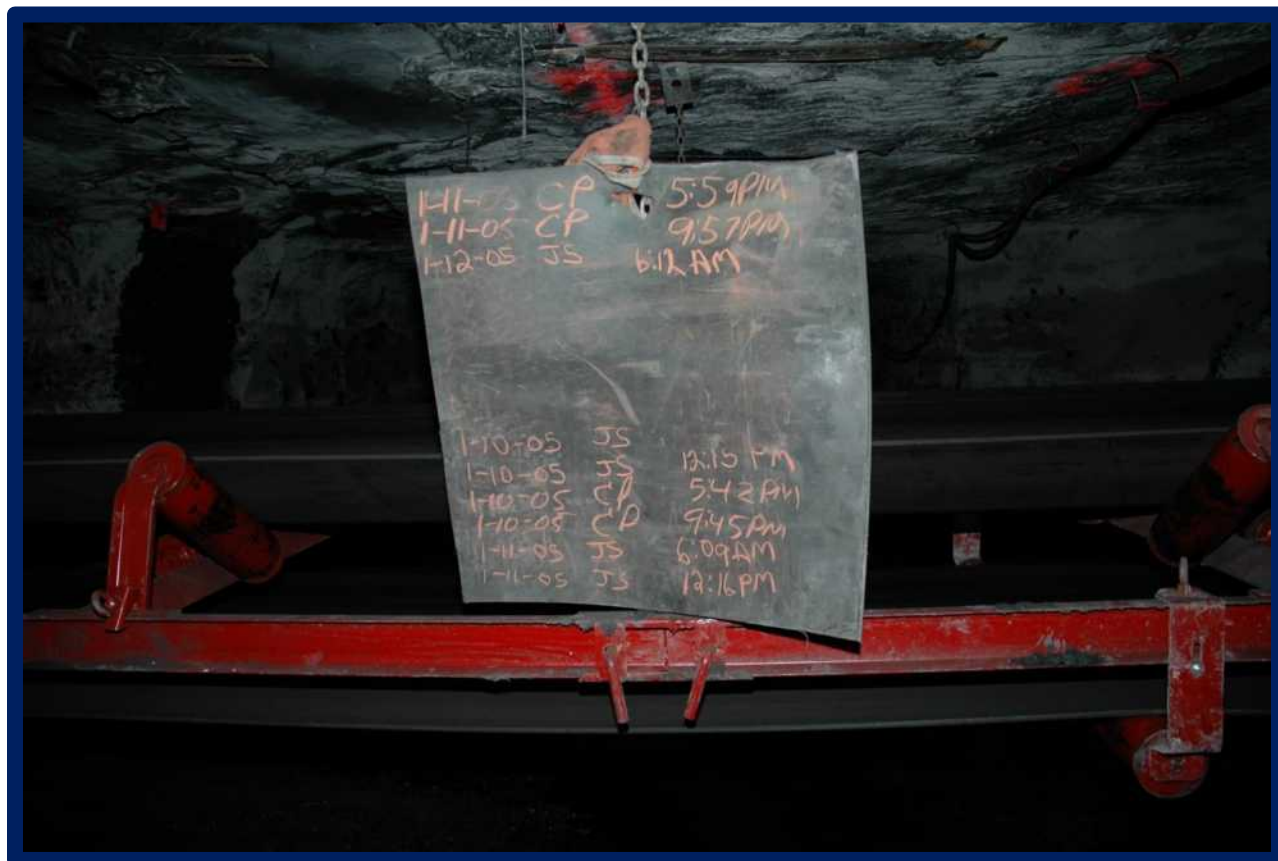 1-11-05 CP 5:59PM
1-11-05 CP 9:57PM
1-12-05 JS 6:12 AM
1-10-05 JS
1-10-05 JS 12:15 PM
1-10-05 CP 5:42PM
1-10-05 CP 9:45PM
1-11-05 JS 6:09AM
1-11-05 JS 12:16PM